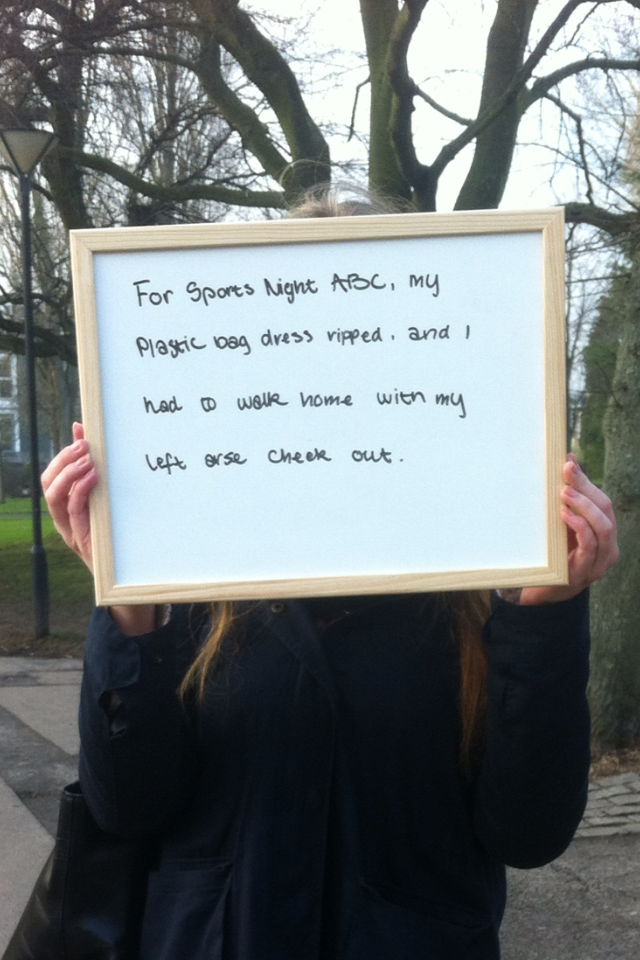 For Sports Night ABC, my
Plastic bag dress ripped. and I
had to walk home with my
left arse cheek out.